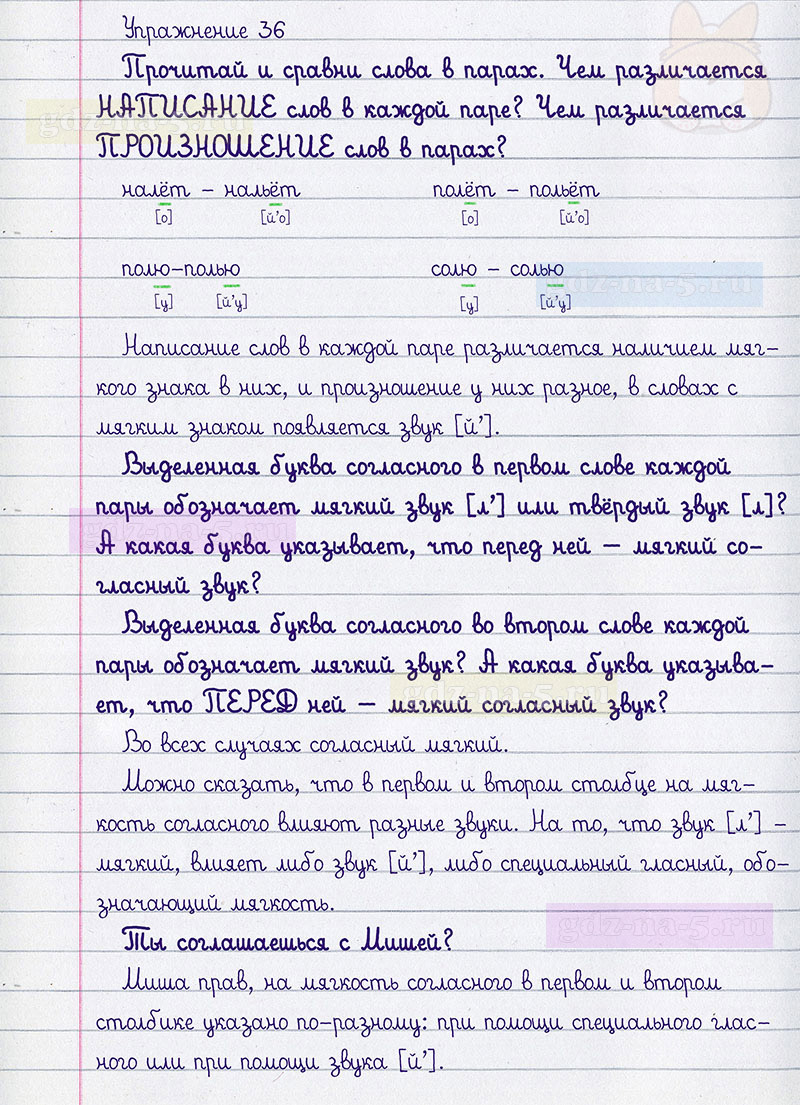 Упражнение 36
Прочитай и сравни слова в парах. Чем различается
НАПИСАНИЕ слов в каждой паре? Чем различается
gdz-na-5.ru
ПРОИЗНОШЕНИЕ слов в парах?
налёт – нальёт полёт – польёт
[о] [й’о] [о] [й’о]
полю–полью солю – солью
gdz-na-5.ru
[у] [й’у] [у] [й’у]
Написание слов в каждой паре различается наличием мяг-
кого знака в них, и произношение у них разное, в словах с
мягким знаком появляется звук [й’].
Выделенная буква согласного в первом слове каждой
пары обозначает мягкий звук [л’] или твёрдый звук [л]?
gdz-na-5.ru
А какая буква указывает, что перед ней – мягкий со-
гласный звук?
Выделенная буква согласного во втором слове каждой
пары обозначает мягкий звук? А какая буква указыва-
gdz-na-5.ru
ет, что ПЕРЕД ней – мягкий согласный звук?
Во всех случаях согласный мягкий.
Можно сказать, что в первом и втором столбце на мяг-
кость согласного влияют разные звуки. На то, что звук [л’] –
мягкий, влияет либо звук [й’], либо специальный гласный, обо-
значающий мягкость.
gdz-na-5.ru
Ты соглашаешься с Мишей?
Миша прав, на мягкость согласного в первом и втором
столбике указано по-разному: при помощи специального глас-
ного или при помощи звука [й’].